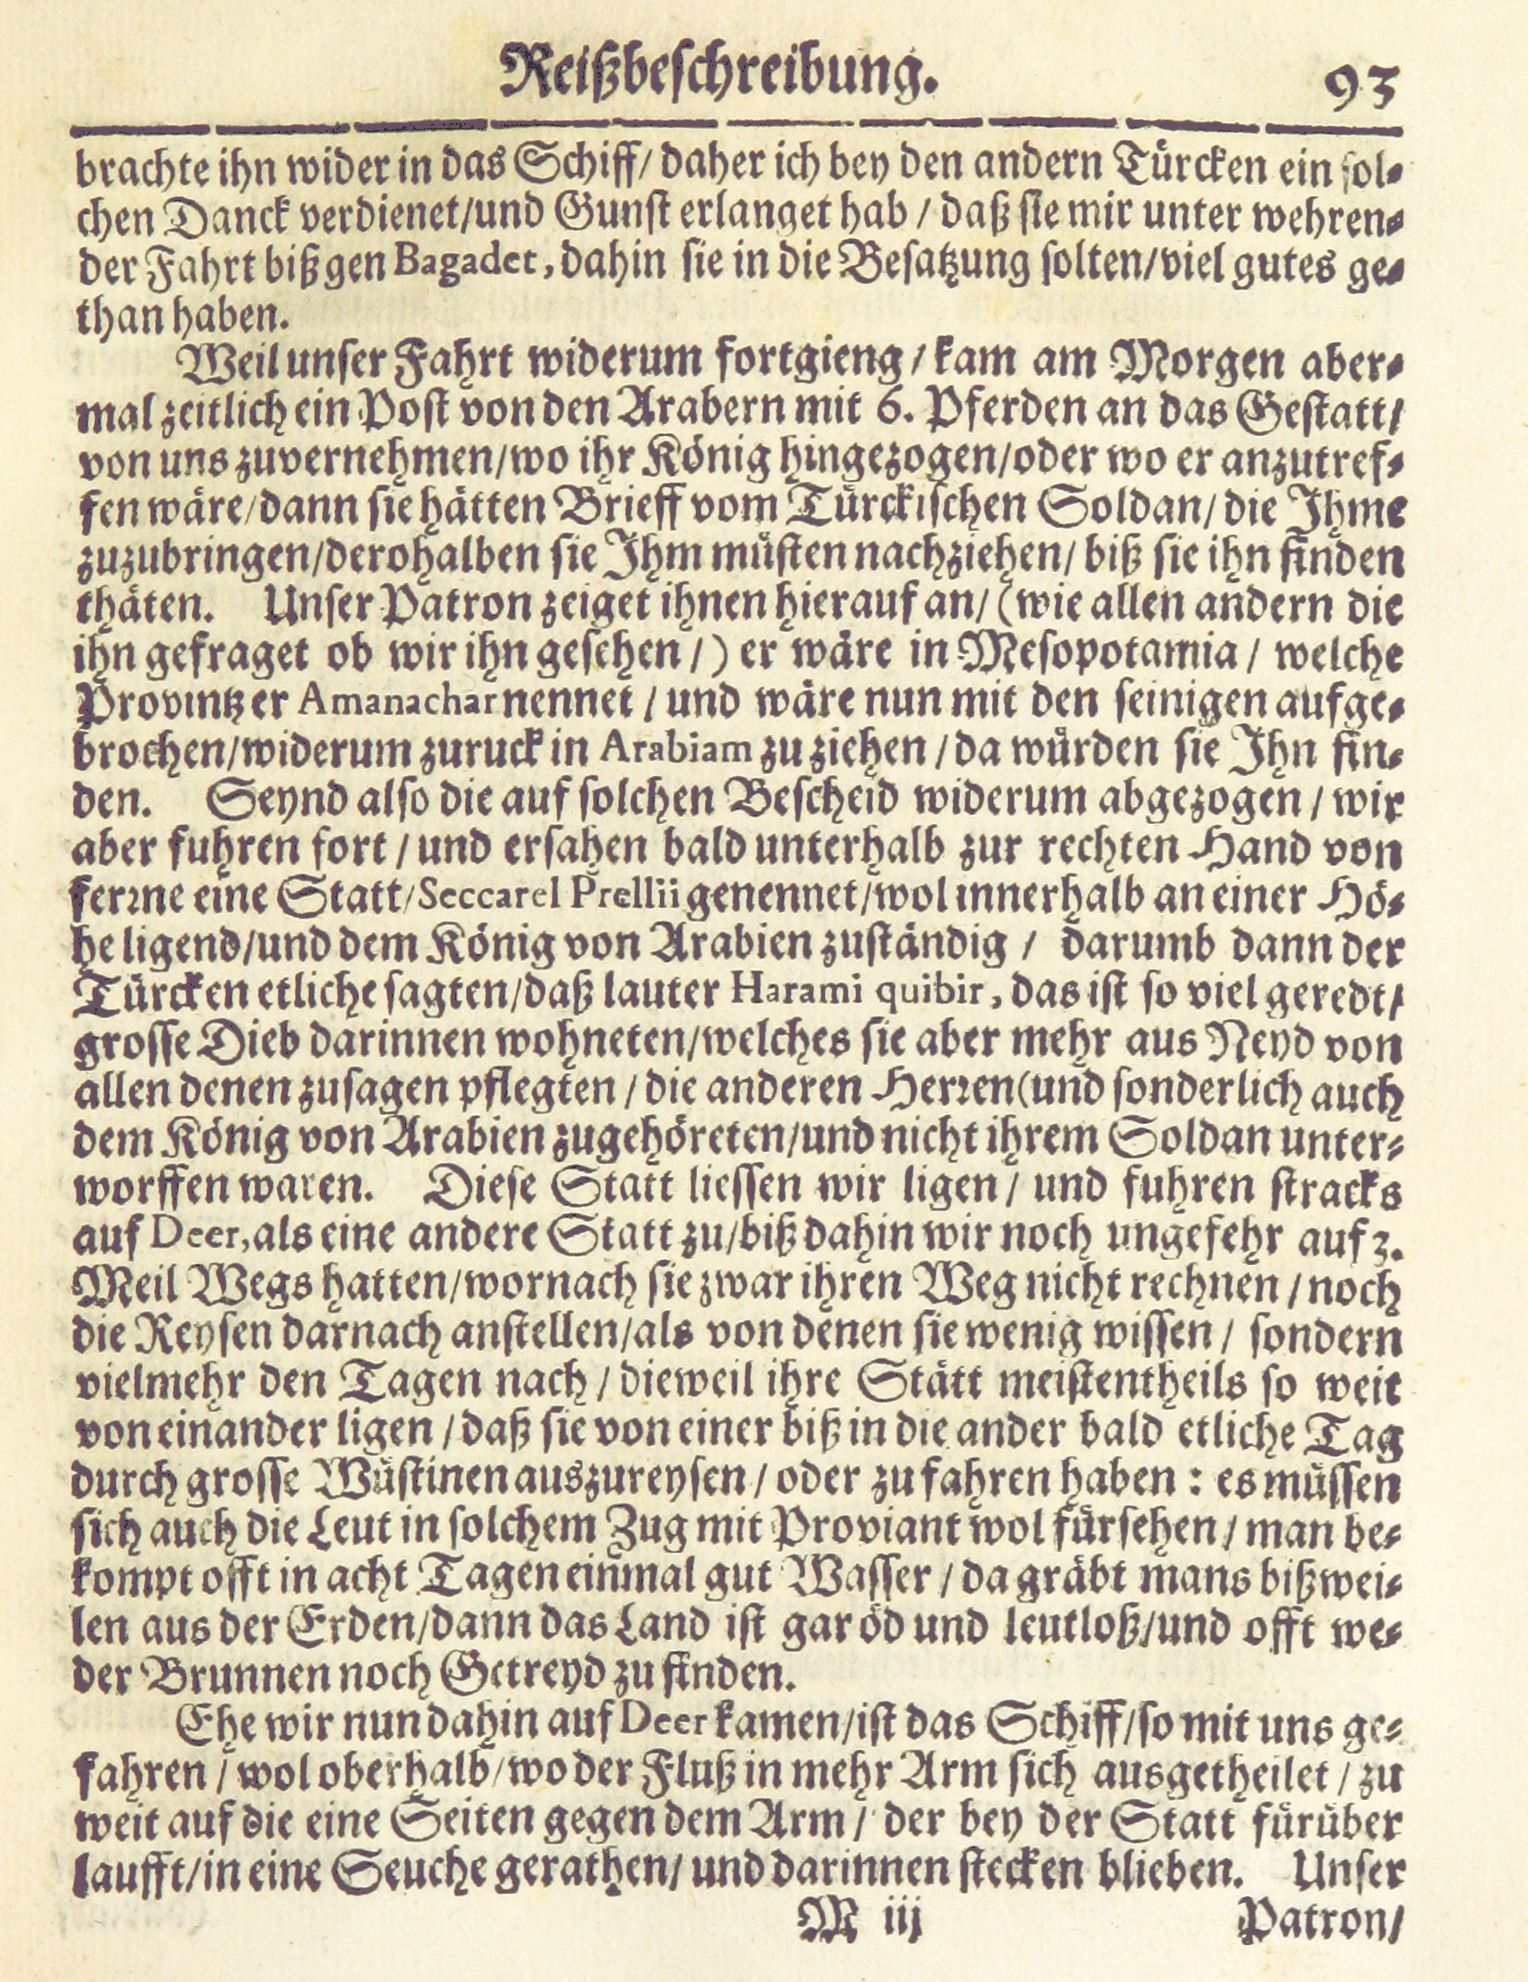 Reißbeschreibung. 93
brachte ihn wider in das Schiff/ daher ich bey den andern Türcken ein sol-
chen Danck verdienet/und Gunst erlanget hab / daß sie mir unter wehren-
der Fahrt biß gen Bagadet, dahin sie in die Besatzung solten/viel gutes ge-
than haben.
Weil unser Fahrt widerum fortgieng / kam am Morgen aber-
mal zeitlich ein Post von den Arabern mit 6. Pferden an das Gestatt/
von uns zuvernehmen/wo ihr König hingezogen/oder wo er anzutref-
fen wäre/dann sie hätten Brieff vom Türckischen Soldan/ die Ihme
zuzubringen/derohalben sie Ihm müsten nachziehen/ biß sie ihn finden
thäten. Unser Patron zeiget ihnen hierauf an/ (wie allen andern die
ihn gefraget ob wir ihn gesehen /) er wäre in Mesopotamia / welche
Provintz er Amanachar nennet / und wäre nun mit den seinigen aufge-
brochen/widerum zuruck in Arabiam zu ziehen / da würden sie Ihn fin-
den. Seynd also die auf solchen Bescheid widerum abgezogen / wir
aber fuhren fort / und ersahen bald unterhalb zur rechten Hand von
ferꝛne eine Statt/ Seccarel Prellii genennet/wol innerhalb an einer Hö-
he ligend/und dem König von Arabien zuständig / darumb dann der
Türcken etliche sagten/daß lauter Harami quibir, das ist so viel geredt/
grosse Dieb darinnen wohneten/welches sie aber mehr aus Neyd von
allen denen zusagen pflegten / die anderen Herꝛen (und sonderlich auch
dem König von Arabien zugehöreten/und nicht ihrem Soldan unter-
worffen waren. Diese Statt liessen wir ligen / und fuhren stracks
auf Deer, als eine andere Statt zu/biß dahin wir noch ungefehr auf 3.
Meil Wegs hatten/wornach sie zwar ihren Weg nicht rechnen / noch
die Reysen darnach anstellen/als von denen sie wenig wissen / sondern
vielmehr den Tagen nach / dieweil ihre Stätt meistentheils so weit
von einander ligen / daß sie von einer biß in die ander bald etliche Tag
durch grosse Wüstinen auszureysen / oder zu fahren haben : es müssen
sich auch die Leut in solchem Zug mit Proviant wol fürsehen / man be-
kompt offt in acht Tagen einmal gut Wasser / da gräbt mans bißwei-
len aus der Erden/dann das Land ist gar öd und leutloß/und offt we-
der Brunnen noch Getreyd zu finden.
Ehe wir nun dahin auf Deer kamen/ist das Schiff/so mit uns ge-
fahren / wol oberhalb/wo der Fluß in mehr Arm sich ausgetheilet / zu
weit auf die eine Seiten gegen dem Arm / der bey der Statt fürüber
laufft/in eine Seuche gerathen/ und darinnen stecken blieben. Unser
M iij Patron/